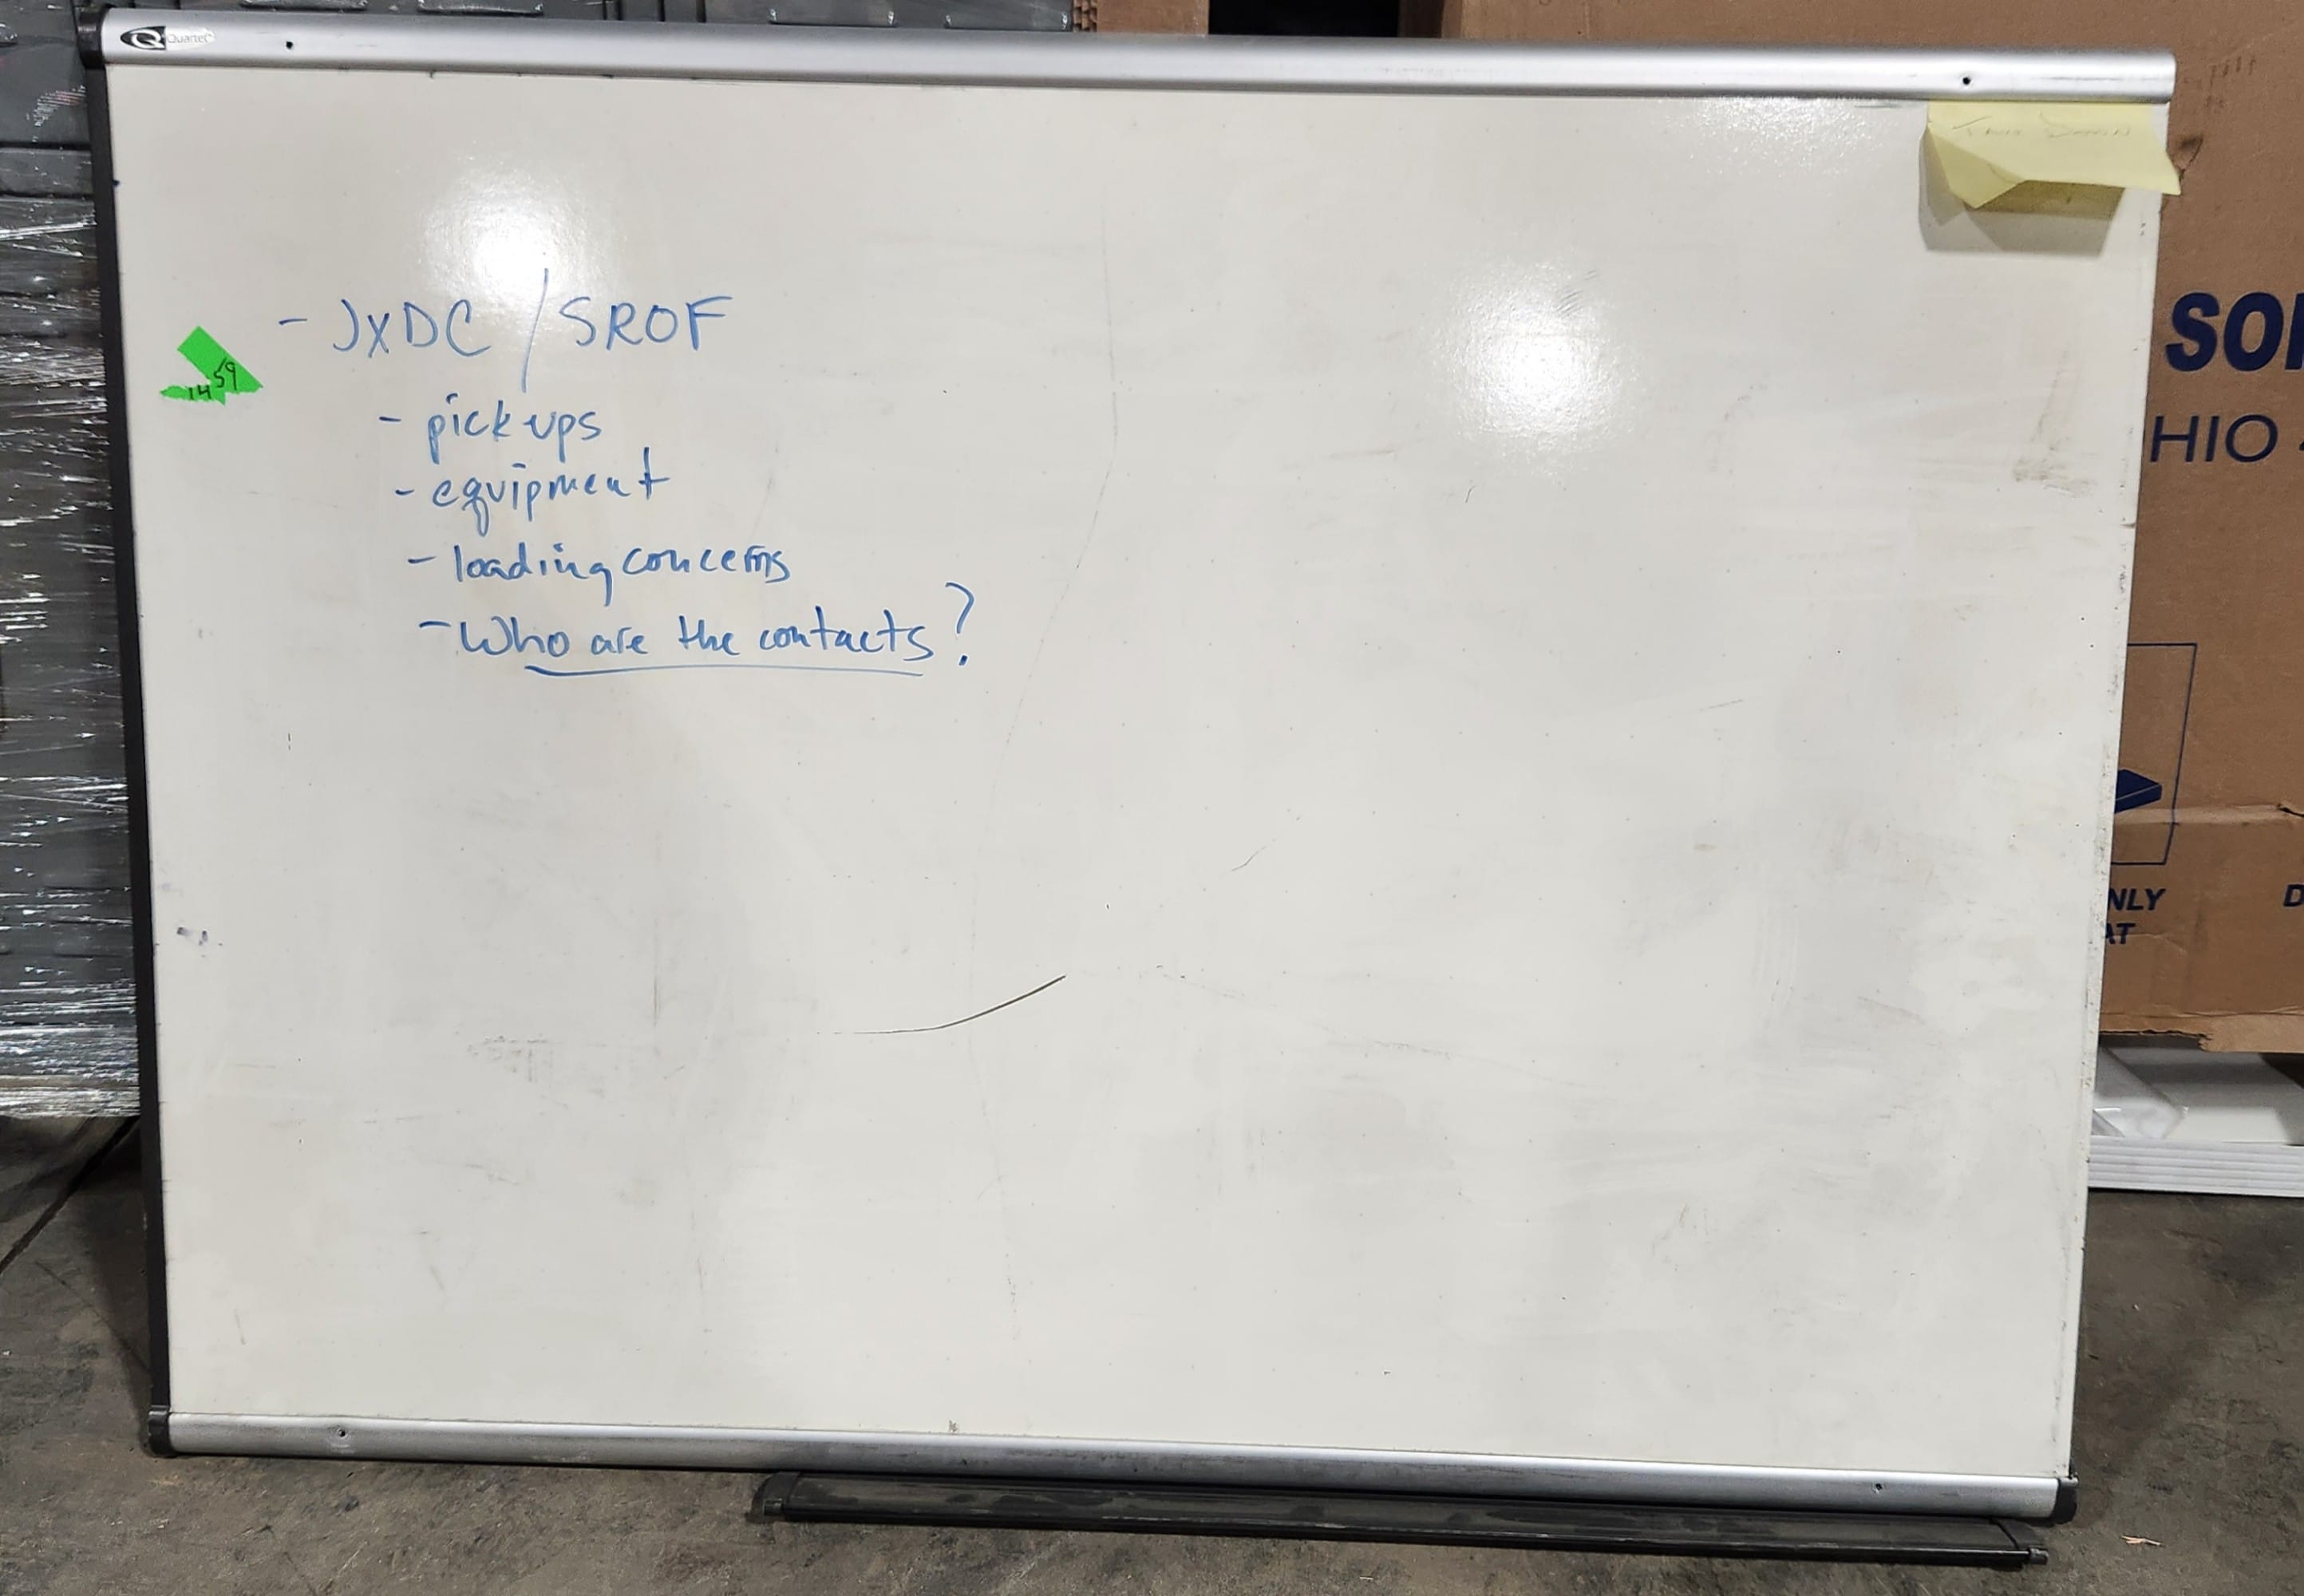 Quartet
- JXDC / SROF
- pickups
- equipment
- loading concerns
- Who are the contacts?
1459
SO
HIO
NLY
AT
D